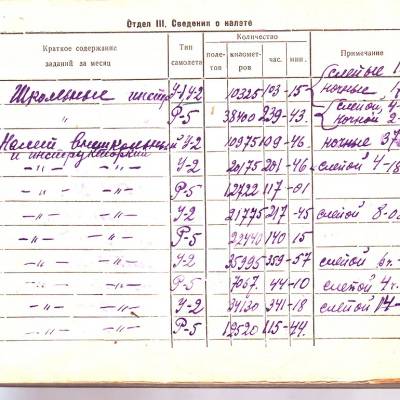 Отдел III. Сведения о налете
Краткое содержание заданий за месяц
Тип самолета
Количество
полетов
километров
час.
мин.
Примечание
Школьные инстр. У-1 У-2 10325 103 - 15 слепые
ночные
Р-5 38400 239 - 43. слепой 4
ночной 2
Налет внешкольный У-2 10975 109 - 46 ночные
и инструкторский
-"- -"- У-2 20175 201 - 46 слепой 4-18
-"- -"- Р-5 12722 117 - 01
-"- -"- У-2 21775 217 - 45 слепой 8-0
-"- -"- Р-5 22440 140 15
-"- -"- У-2 35995 359 - 57 слепой 6ч.
-"- -"- Р-5 7067. 44 - 10 слепой 4ч.
-"- -"- У-2 34130 341 - 18 слепой
-"- -"- Р-5 19520 115 - 44.